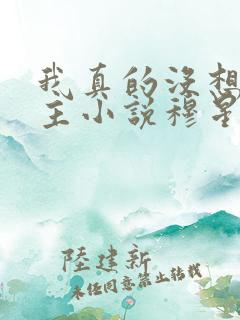 我真的没想
主小说穆星
陸建新
未经同意禁止转载